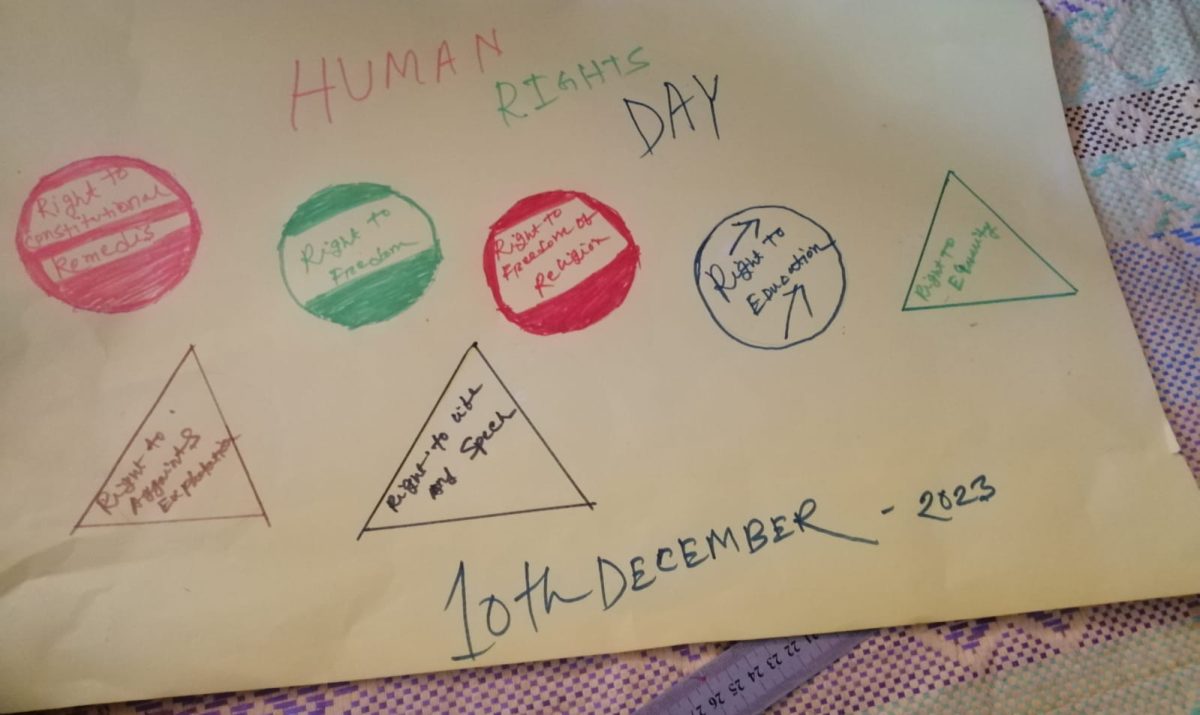 HUMAN
RIGHTS
DAY
Right to
constitutional
Remedis
Right to
Freedom
Right to
Freedom of
Religion
Right to
Education
Right to
Equality
Right to
Againts
Exploitation
Right to life
any Speech
10th DECEMBER - 2023
21 22 23 24 25 26 27